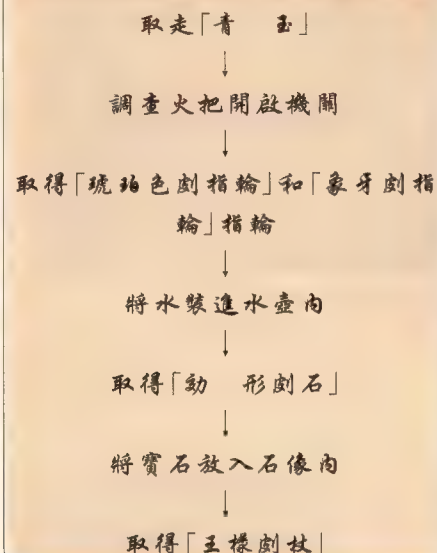 取走「青　玉」
調查火把開啟機關
取得「琥珀色劃指輪」和「象牙劃指
輪」指輪
將水裝進水壺內
取得「効　形劃石」
將寶石放入石像內
取得「王樣劃杖」